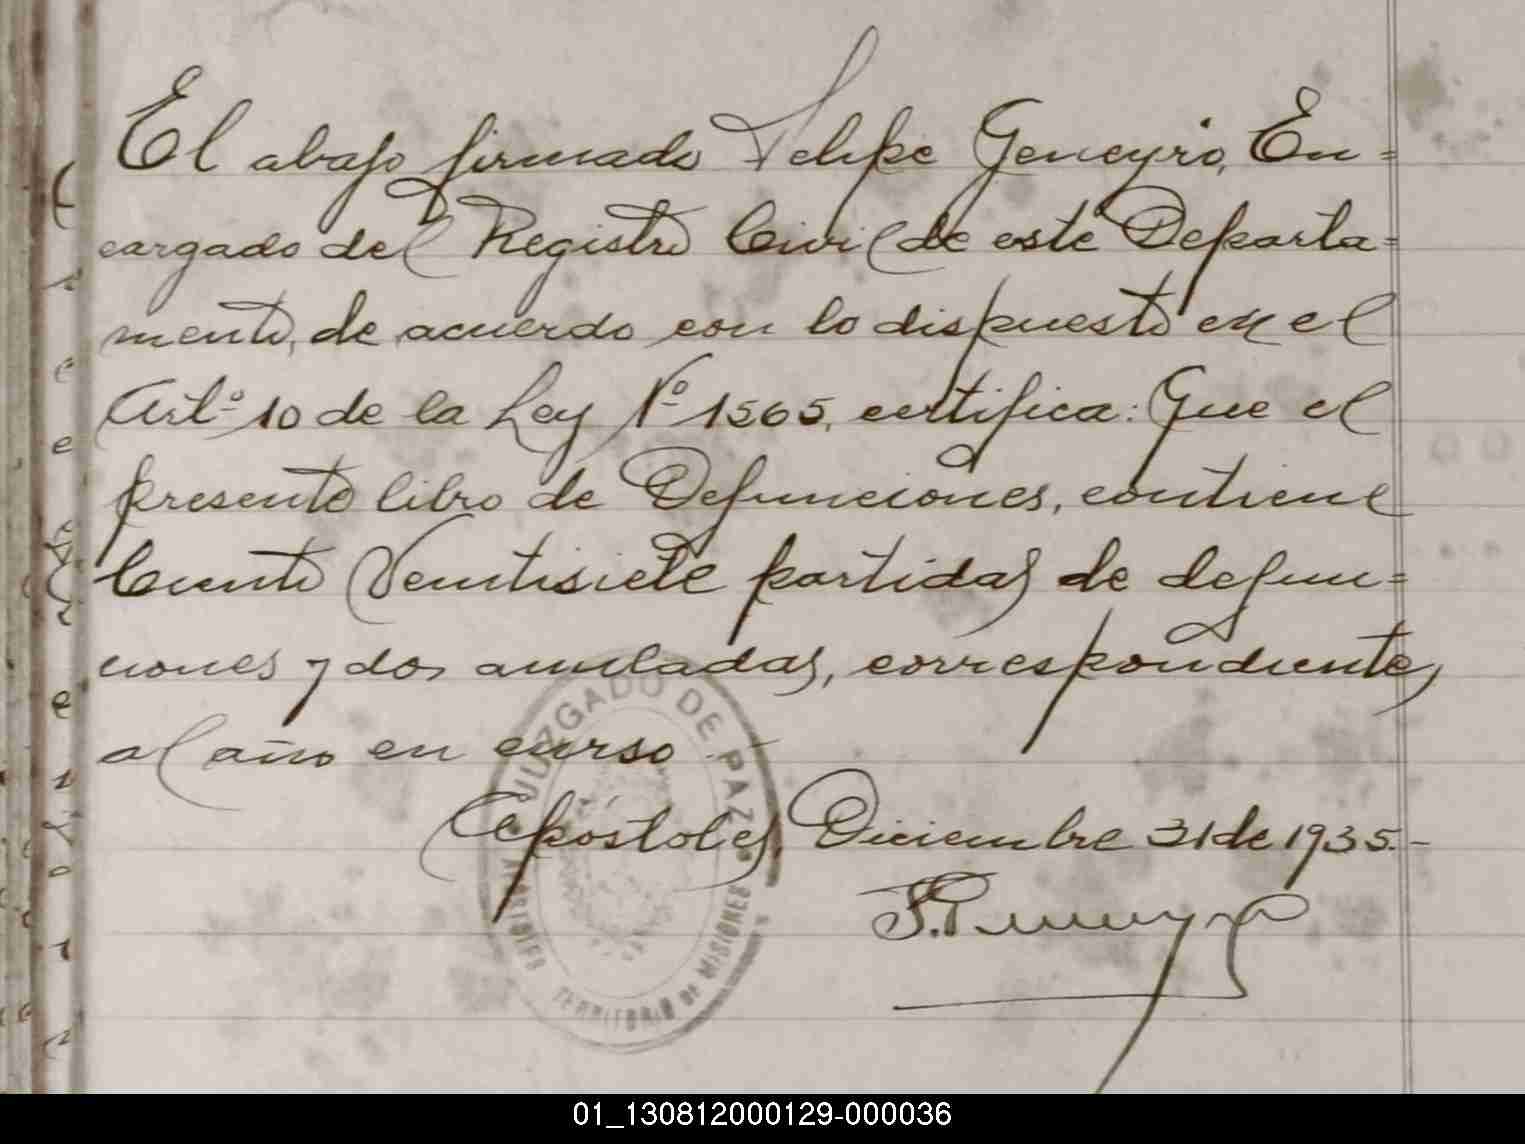 El abajo firmado Felipe Geneyro, En=
cargado del Registro Civil de este Departa=
mento, de acuerdo con lo dispuesto en el
Artº 10 de la Ley Nº 1565, certifica: Que el
presente libro de Defunciones, contiene
Ciento Veintisiete partidas de defun=
ciones y dos anuladas, correspondientes
al año en curso.-
Apóstoles, Diciembre 31 de 1935.-
JUZGADO DE PAZ
TERRITORIO DE MISIONES
01_130812000129-000036